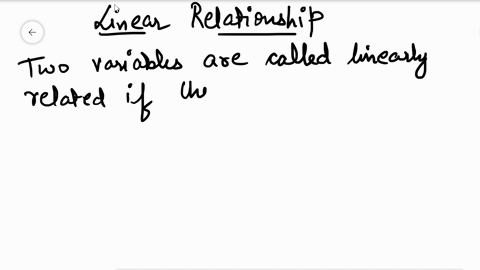 Linear Relationship
Two variables are called linearly
related if the